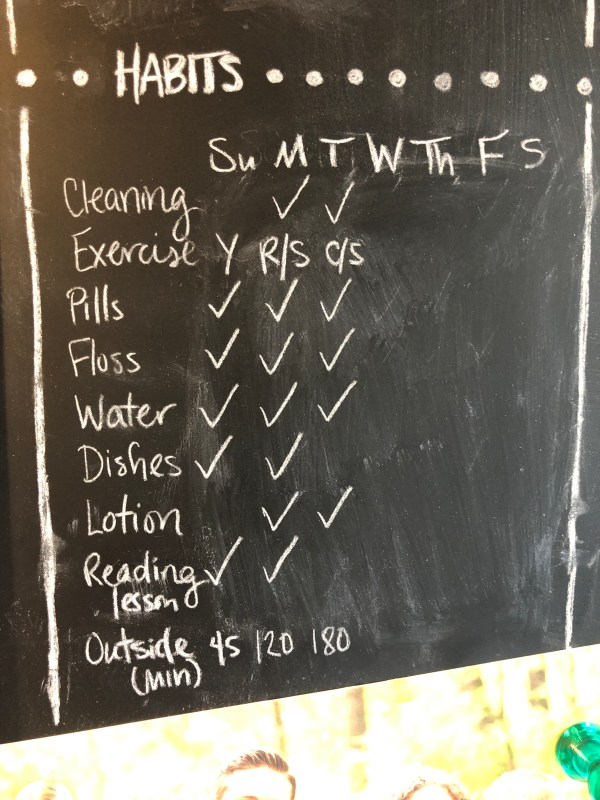 HABITS
Su M T W Th F S
Cleaning ✓ ✓
Exercise Y R/S C/S
Pills ✓ ✓ ✓
Floss ✓ ✓ ✓
Water ✓ ✓ ✓
Dishes ✓ ✓
Lotion ✓ ✓
Reading ✓ ✓
lesson
Outside 45 120 180
(min)